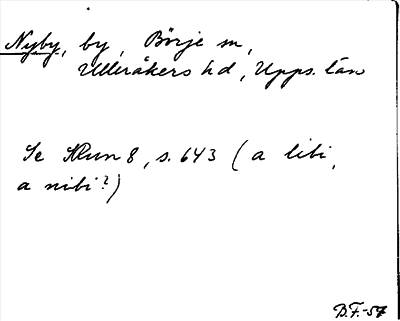 Nyby, by, Börje sn,
Ulleråkers hd, Upps. län
Se SRun 8, s. 643 (a libi,
a nibi?)
B.F.-57